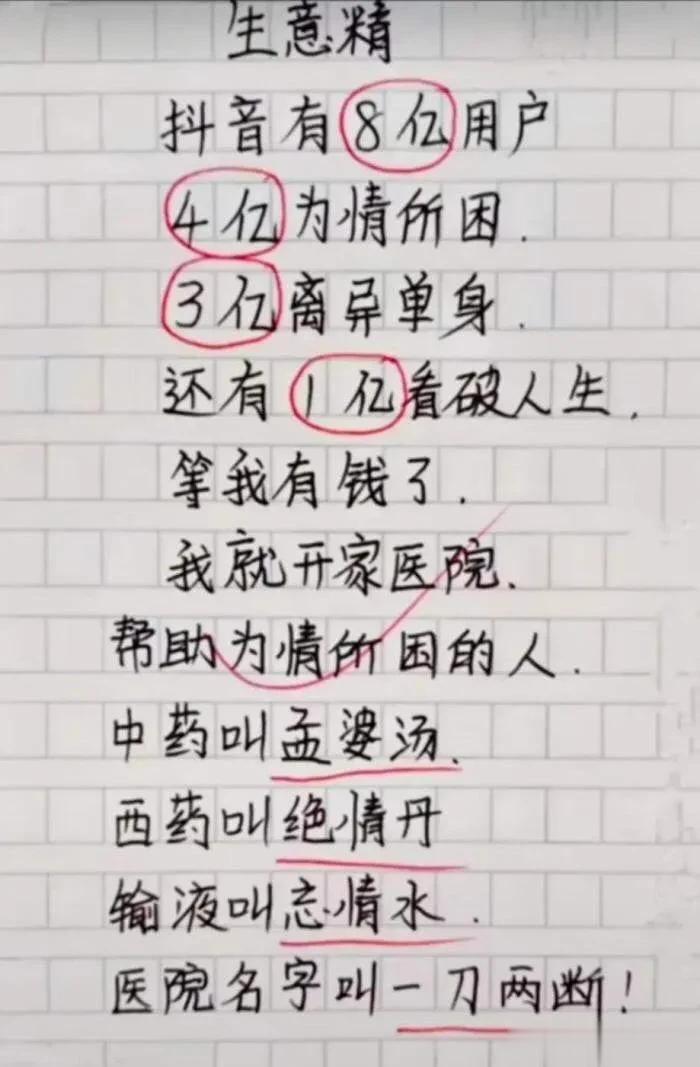 生意精
抖音有8亿用户
4亿为情所困.
3亿离异单身.
还有1亿看破人生.
等我有钱了.
我就开家医院.
帮助为情所困的人.
中药叫孟婆汤.
西药叫绝情丹
输液叫忘情水.
医院名字叫一刀两断!